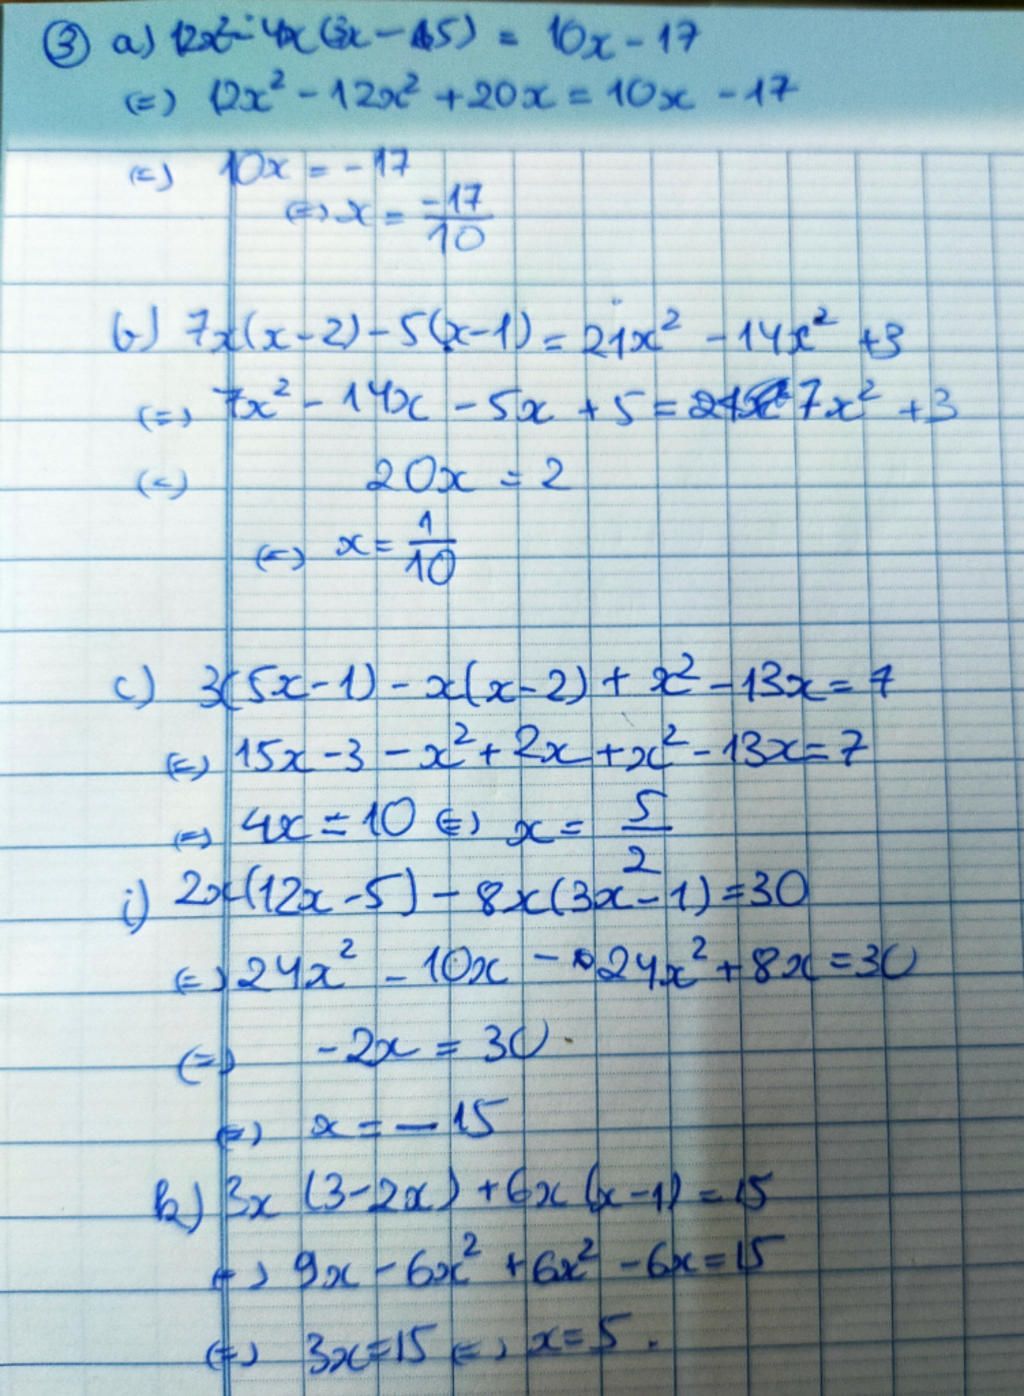 ③ a) 12x² - 4x(3x - 5) = 10x - 17
(=) 12x² - 12x² + 20x = 10x - 17
(=) 10x = -17
(=) x = -17/10
b) 7x(x-2) - 5(x-1) = 21x² - 14x² + 3
(=) 7x² - 14x - 5x + 5 = 7x² + 3
(=) 20x = 2
(=) x = 1/10
c) 3(5x-1) - x(x-2) + x² - 13x = 7
(=) 15x - 3 - x² + 2x + x² - 13x = 7
(=) 4x = 10 (=) x = 5/2
i) 2x(12x-5) - 8x(3x-1) = 30
(=) 24x² - 10x - 24x² + 8x = 30
(=) -2x = 30
(=) x = -15
k) 3x (3-2x) + 6x (x-1) = 15
(=) 9x - 6x² + 6x² - 6x = 15
(=) 3x = 15 (=) x = 5.